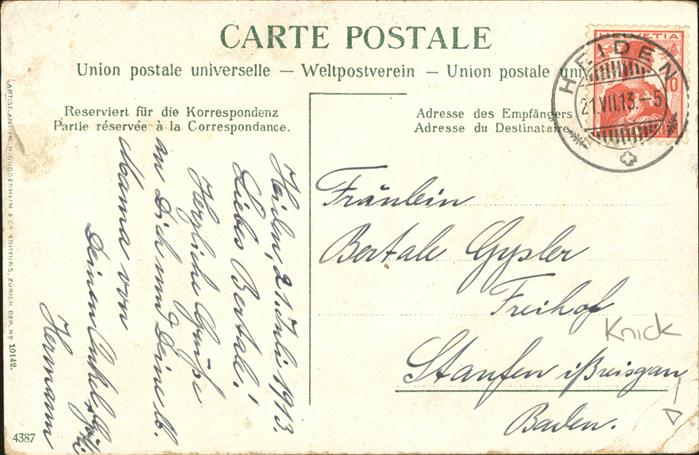 CARTE POSTALE
Union postale universelle — Weltpostverein — Union postale uni
Reserviert für die Korrespondenz
Partie réservée à la Correspondance.
Adresse des Empfängers
Adresse du Destinataire
HELVETIA
10
HEIDEN
21.VII.13.-5
Heiden, 21. Juli 1913.
Liebes Bertale!
Herzliche Grüße
an Dich und Deine lb.
Mama von
Deinem Onkel
Hermann
Fräulein
Bertale Gysler
Freihof
Knick
Staufen i/Breisgau
Baden.
GUGGENHEIM & Co, EDITEURS, ZÜRICH. DEP. No 10142.
4387